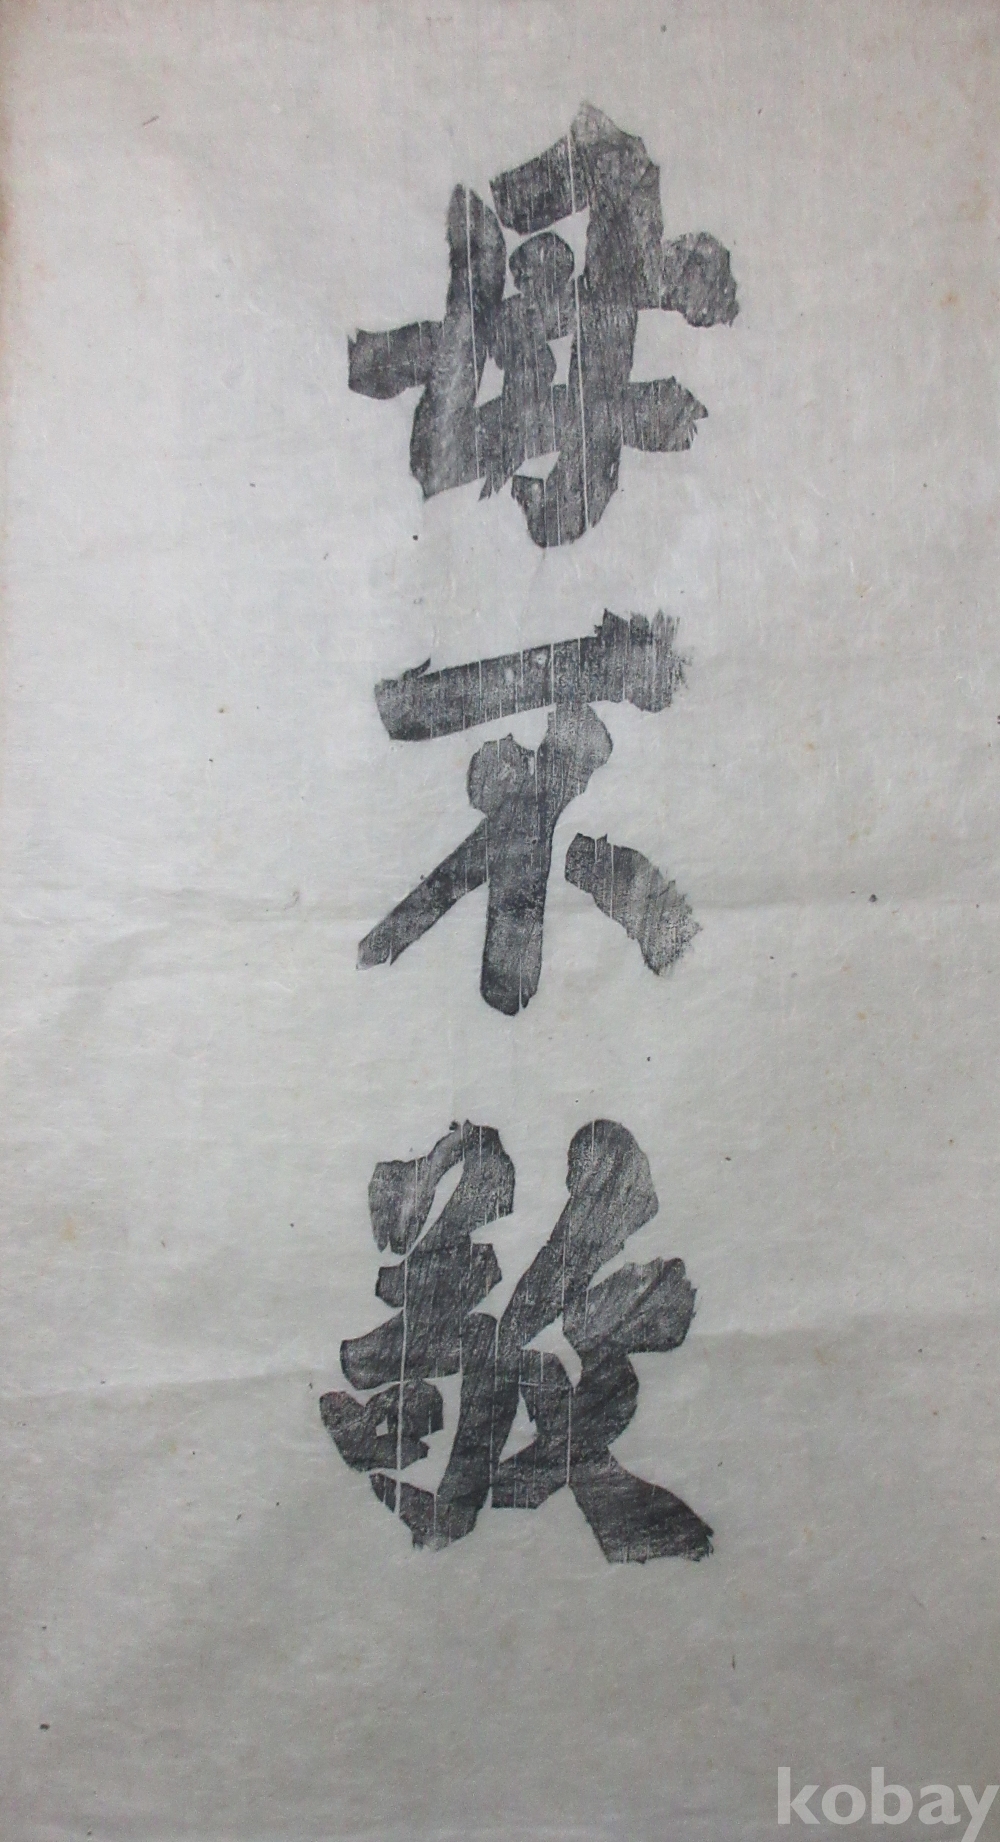 毋不敬
kobay